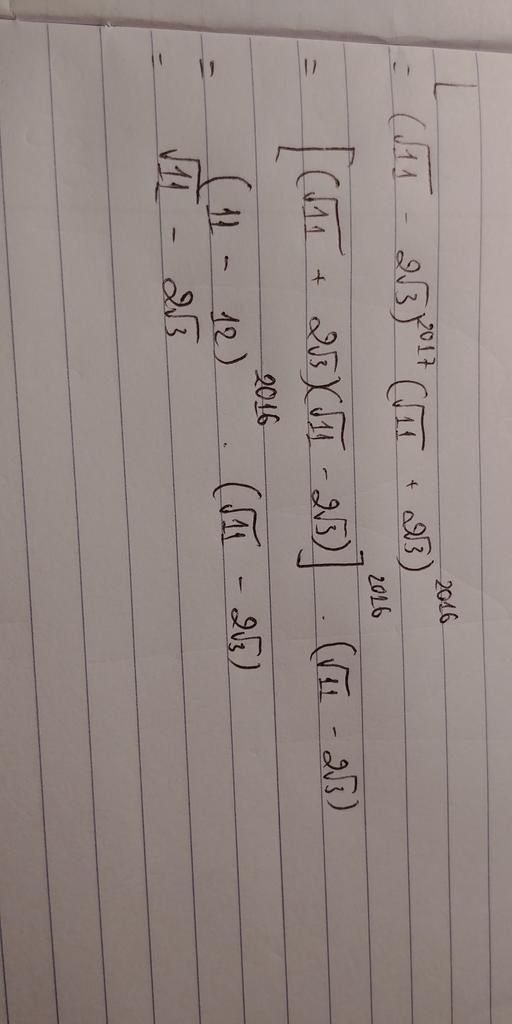 = (√11 - 2√3)^2017 (√11 + 2√3)^2016
= [(√11 + 2√3)(√11 - 2√3)]^2016 . (√11 - 2√3)
= (11 - 12)^2016 . (√11 - 2√3)
= √11 - 2√3